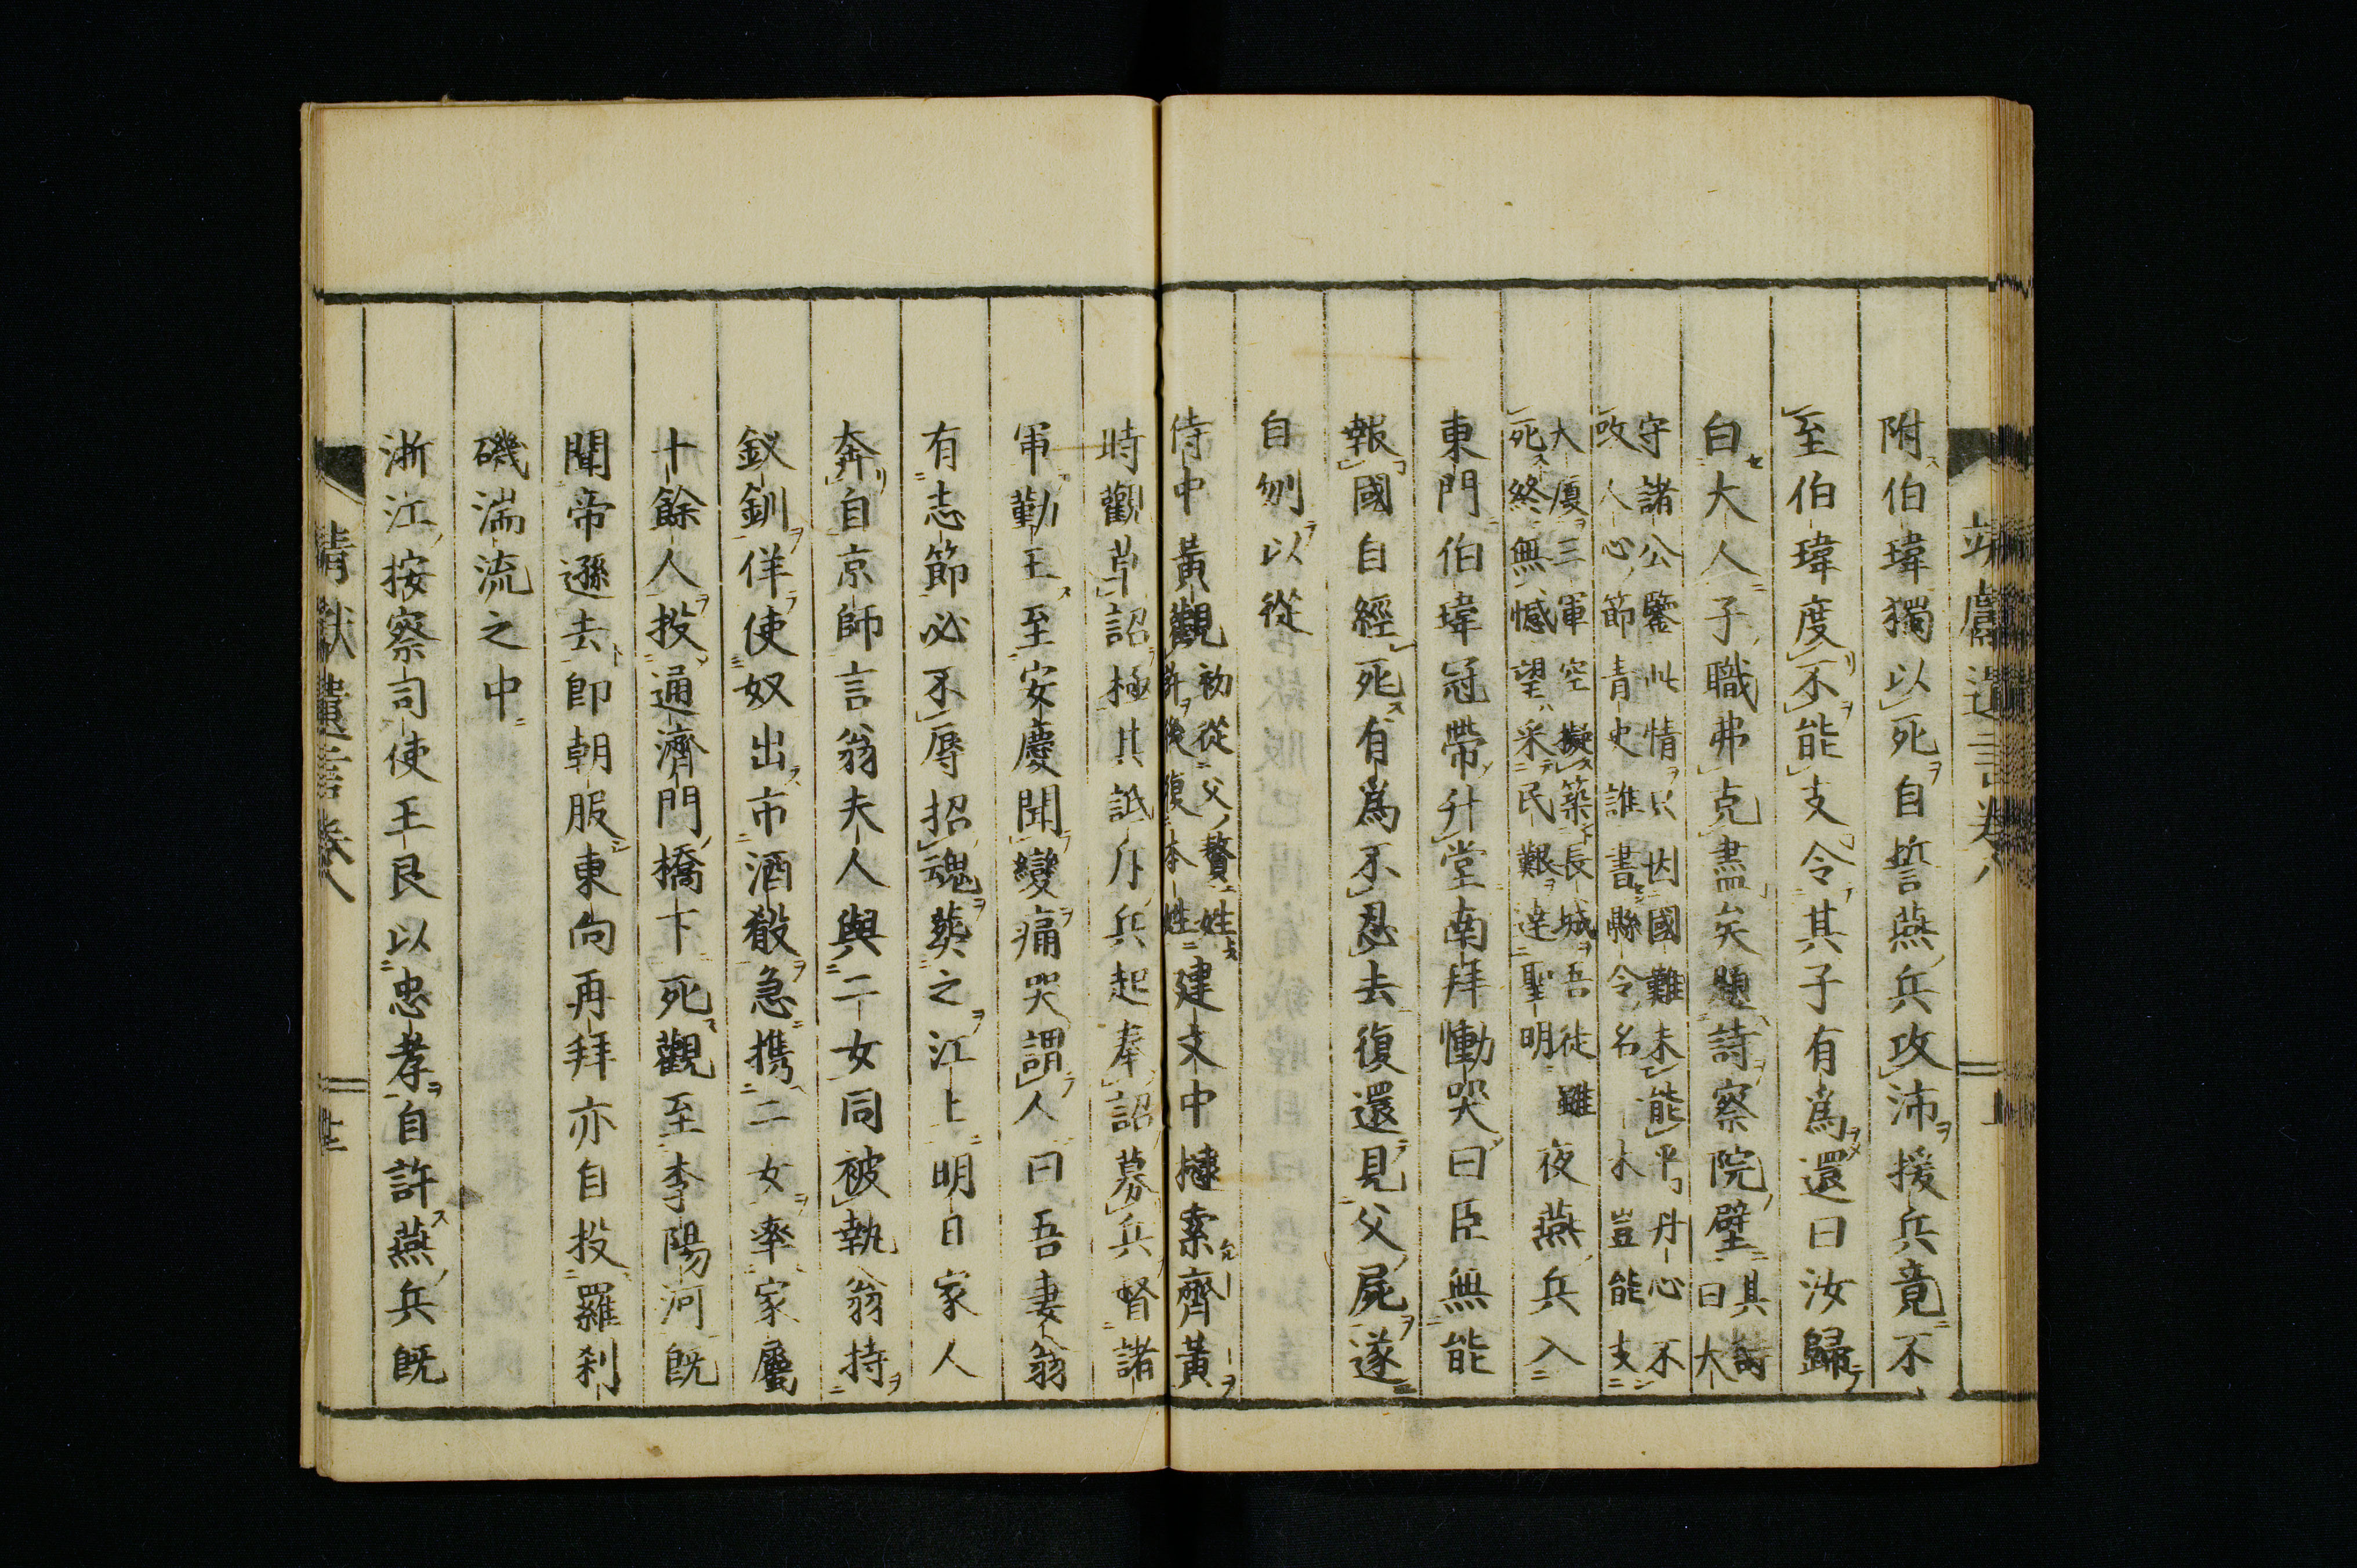 附伯瑋獨以死自誓燕兵攻沛援兵竟不
至伯瑋度不能支令其子有爲還曰汝歸
白大人子職弗克盡矣題詩察院壁其詩
曰大
守諸公鑒此情只因國難未能平丹心不
改人心節青史誰書縣令名 木豈能支
大厦三軍空擬築長城吾徒雖
死終無憾望采民艱達聖明
夜燕兵入
東門伯瑋冠帶升堂南拜慟哭曰臣無能
報國自經死有爲不忍去復還見父屍遂
自刎以從
侍中黃觀初從父贅姓
許後復本姓
建文中捷索齊黃
時觀草詔極其詆斥兵起奉詔募兵督諸
軍勤王至安慶聞變痛哭謂人曰吾妻翁
有志節必不辱招魂葬之江上明日家人
奔自京師言翁夫人與二女同被執翁持
釵釧佯使奴出市酒殽急携二女率家屬
十餘人投通濟門橋下死觀至李陽河旣
聞帝遜去卽朝服東向再拜亦自投羅刹
磯湍流之中
浙江按察司使王艮以忠孝自許燕兵旣
靖獻遺言卷八